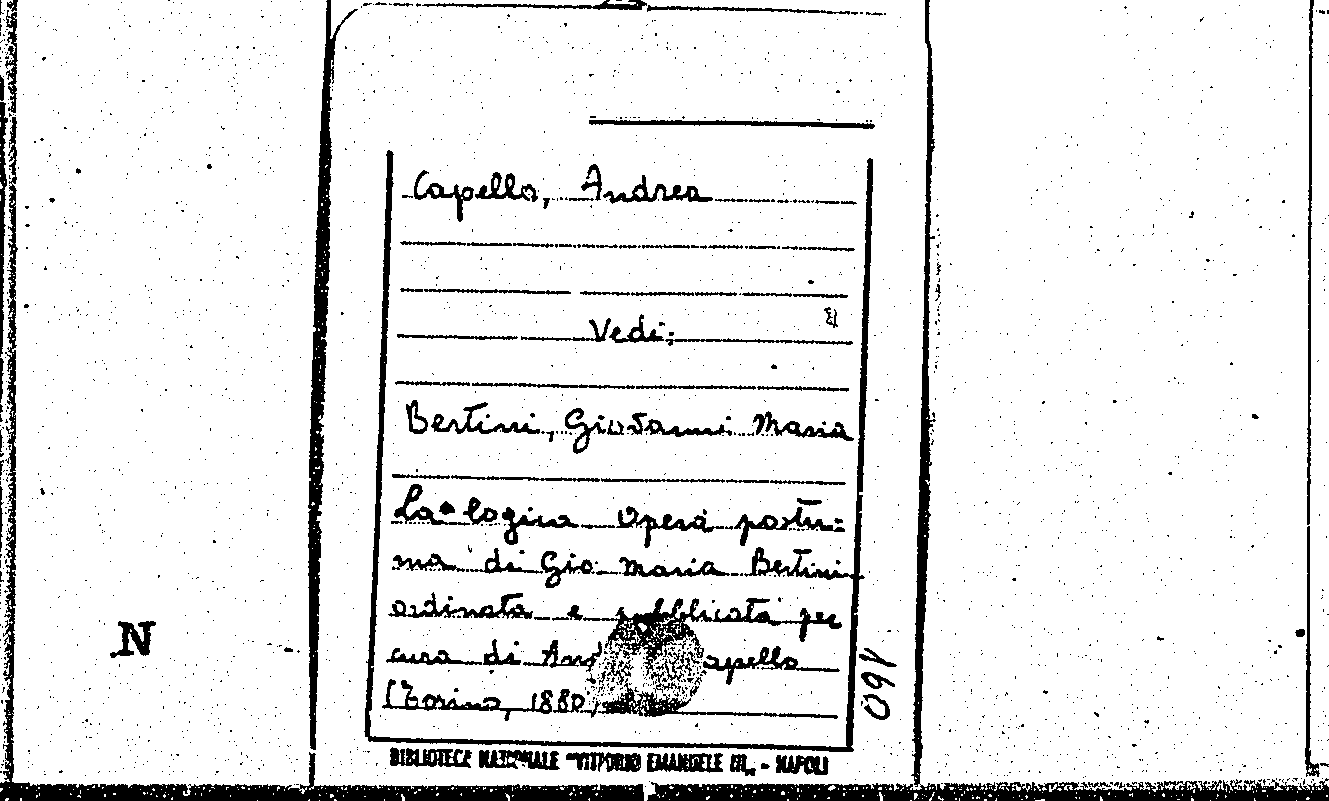 Capello, Andrea
Vedi:
Bertini, Giovanni Maria
La logica Opera postu=
ma di Gio Maria Bertini
ordinata e pubblicata per
cura di apello
(Torino, 1880)
N
160
BIBLIOTECA NAZIONALE "VITTORIO EMANUELE III„ - NAPOLI